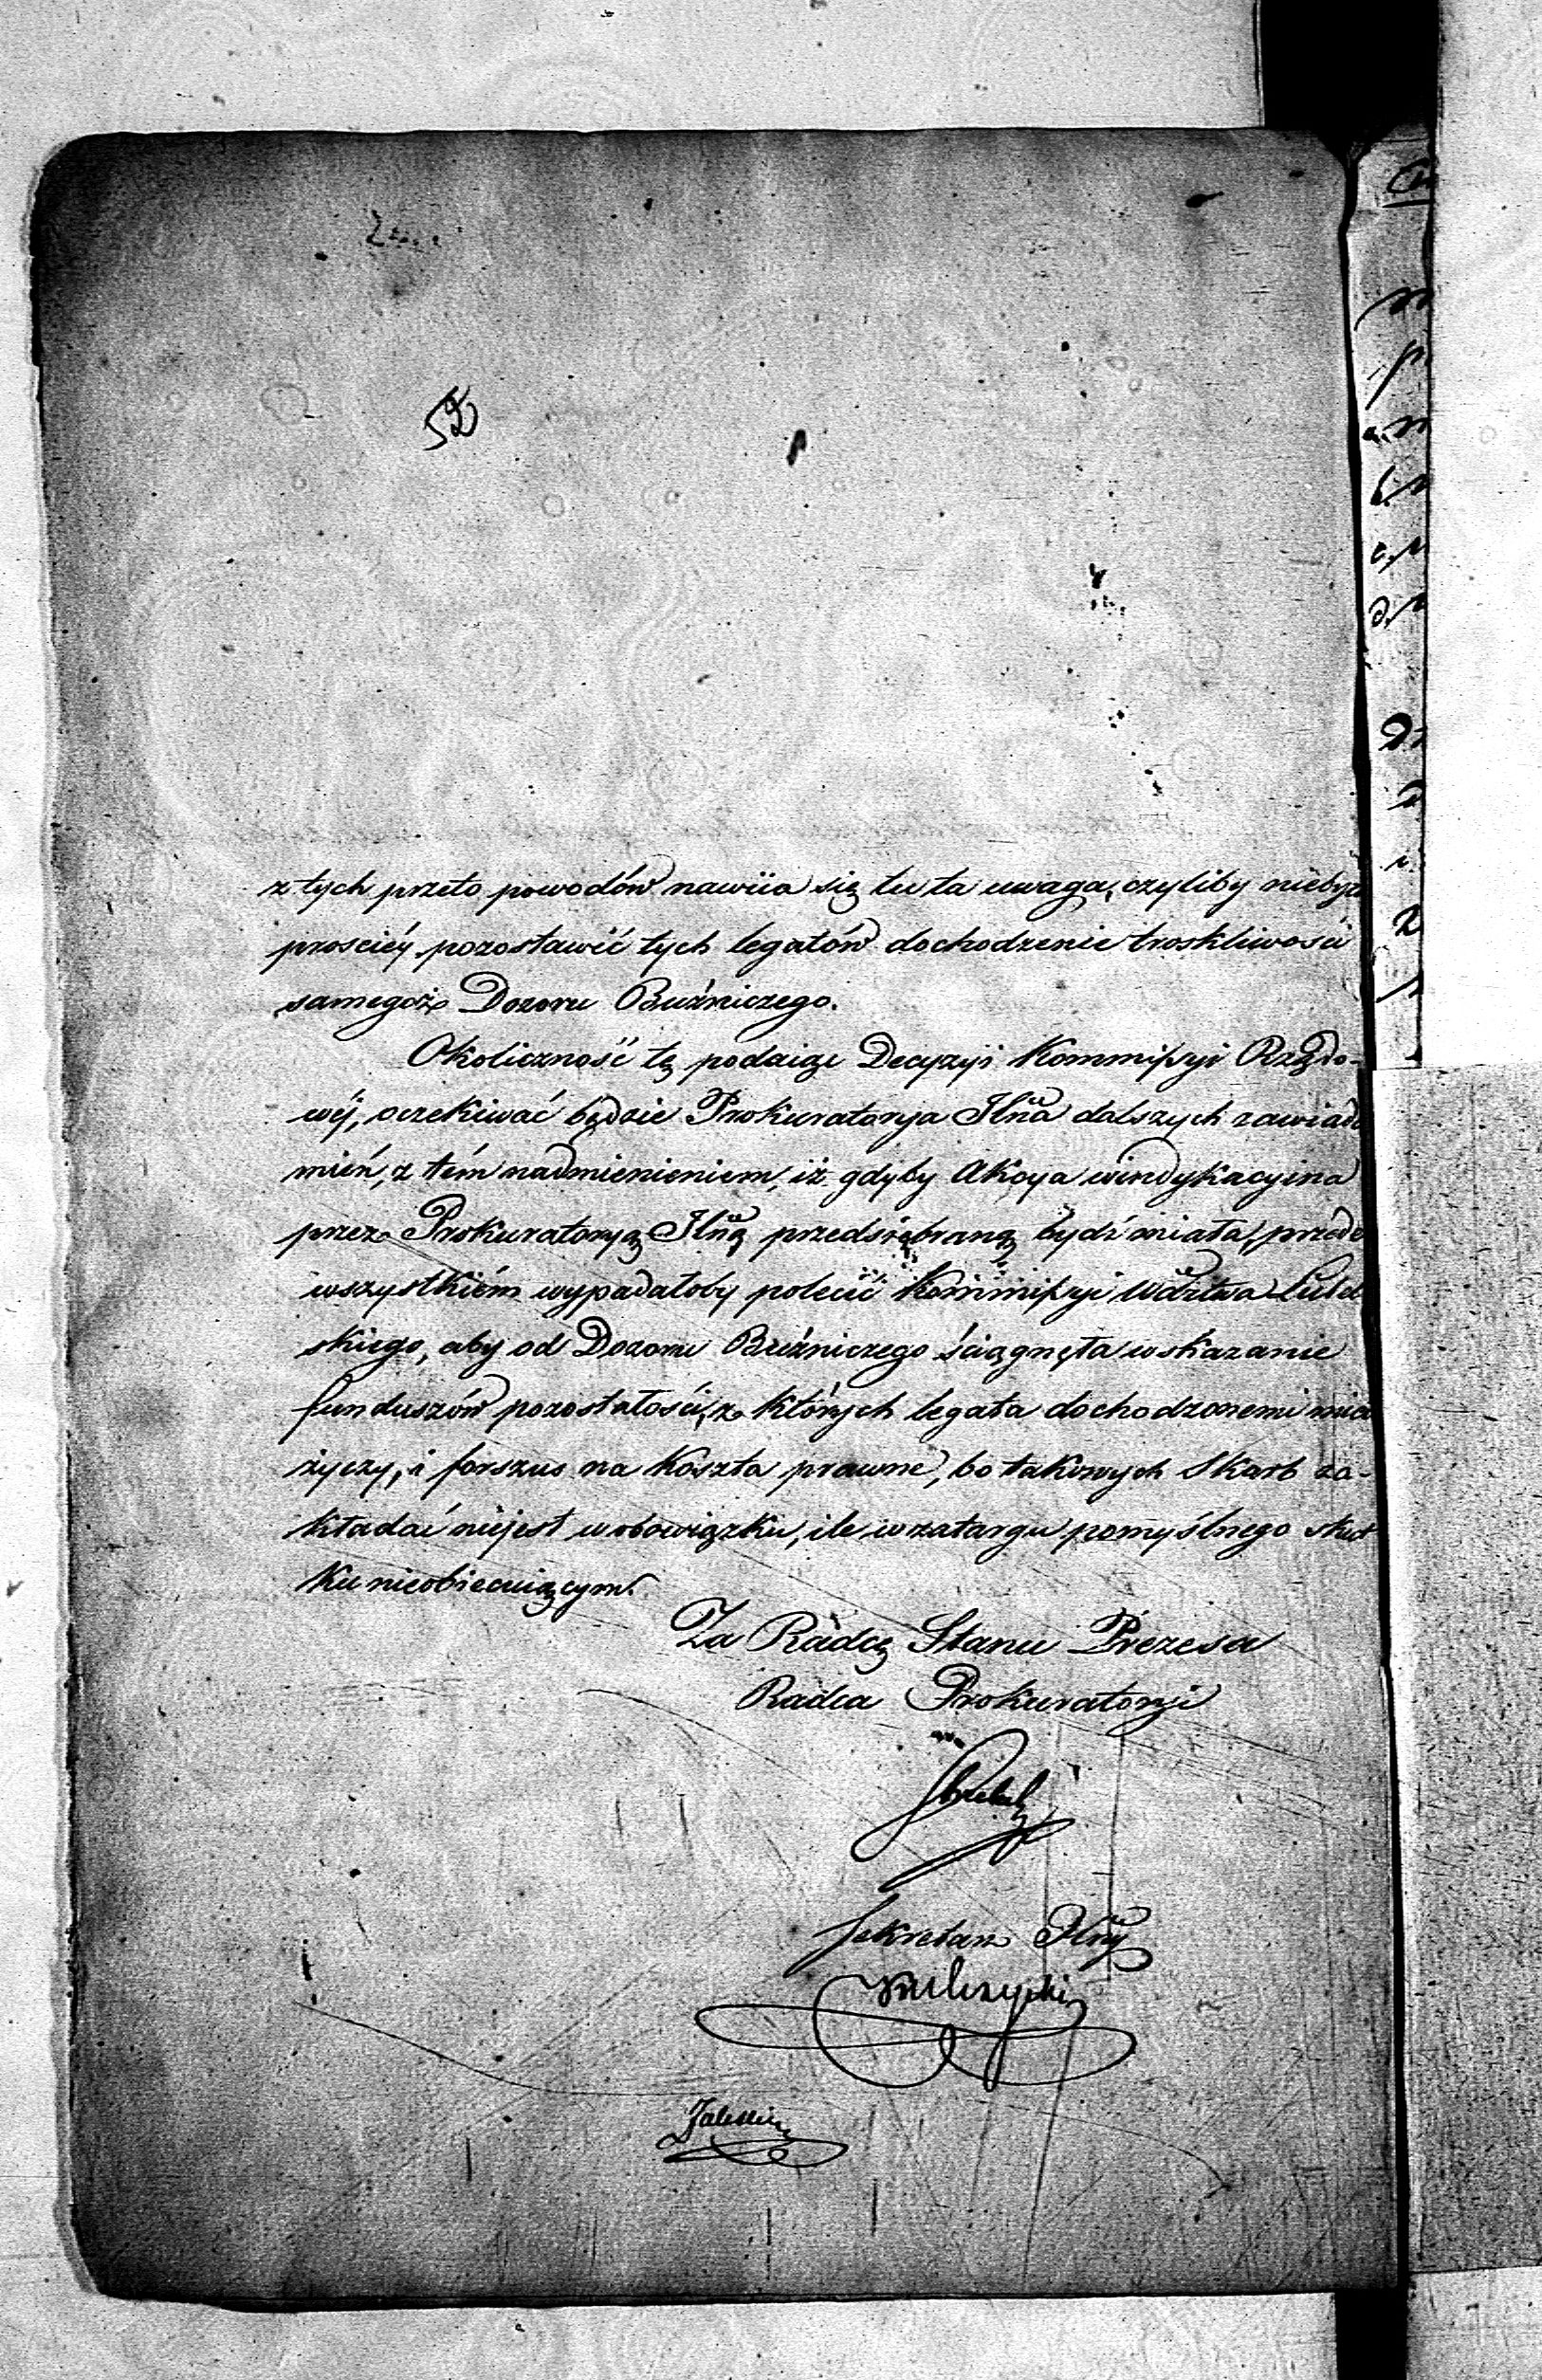 52
z tych przeto powodów nawiia się tu ta uwaga, czyliby nieby
prosciéy pozostawić tych legatów dochodzenie troskliwości
samegoż Dozoru Bużniczego.
Okoliczność tę podaiąc Decyzyi Kommissyi Rządo-
wéj, oczekiwać będzie Prokuratorya Jlna dalszych zawiado
mień, z tém nadmienieniem, iż gdyby Akcya windykacyina
przez Prokuratoryą Jlną przedsiębraną bydź miała, przede
wszystkiém wypadałoby polecić Kommissyi Wdztwa Lubel
skiego, aby od Dozoru Bużniczego ściągnęła wskazanie
funduszów pozostałości, z których legata dochodzonemi mieć
życzy, i forszus na koszta prawne, bo takowych Skarb za-
kładać niejest w obowiązku, ile w zatargu pomyślnego skut
ku nieobiecuiącym.
Za Radcę Stanu Prezesa
Radca Prokuratoryi
Sekretarz Jlny